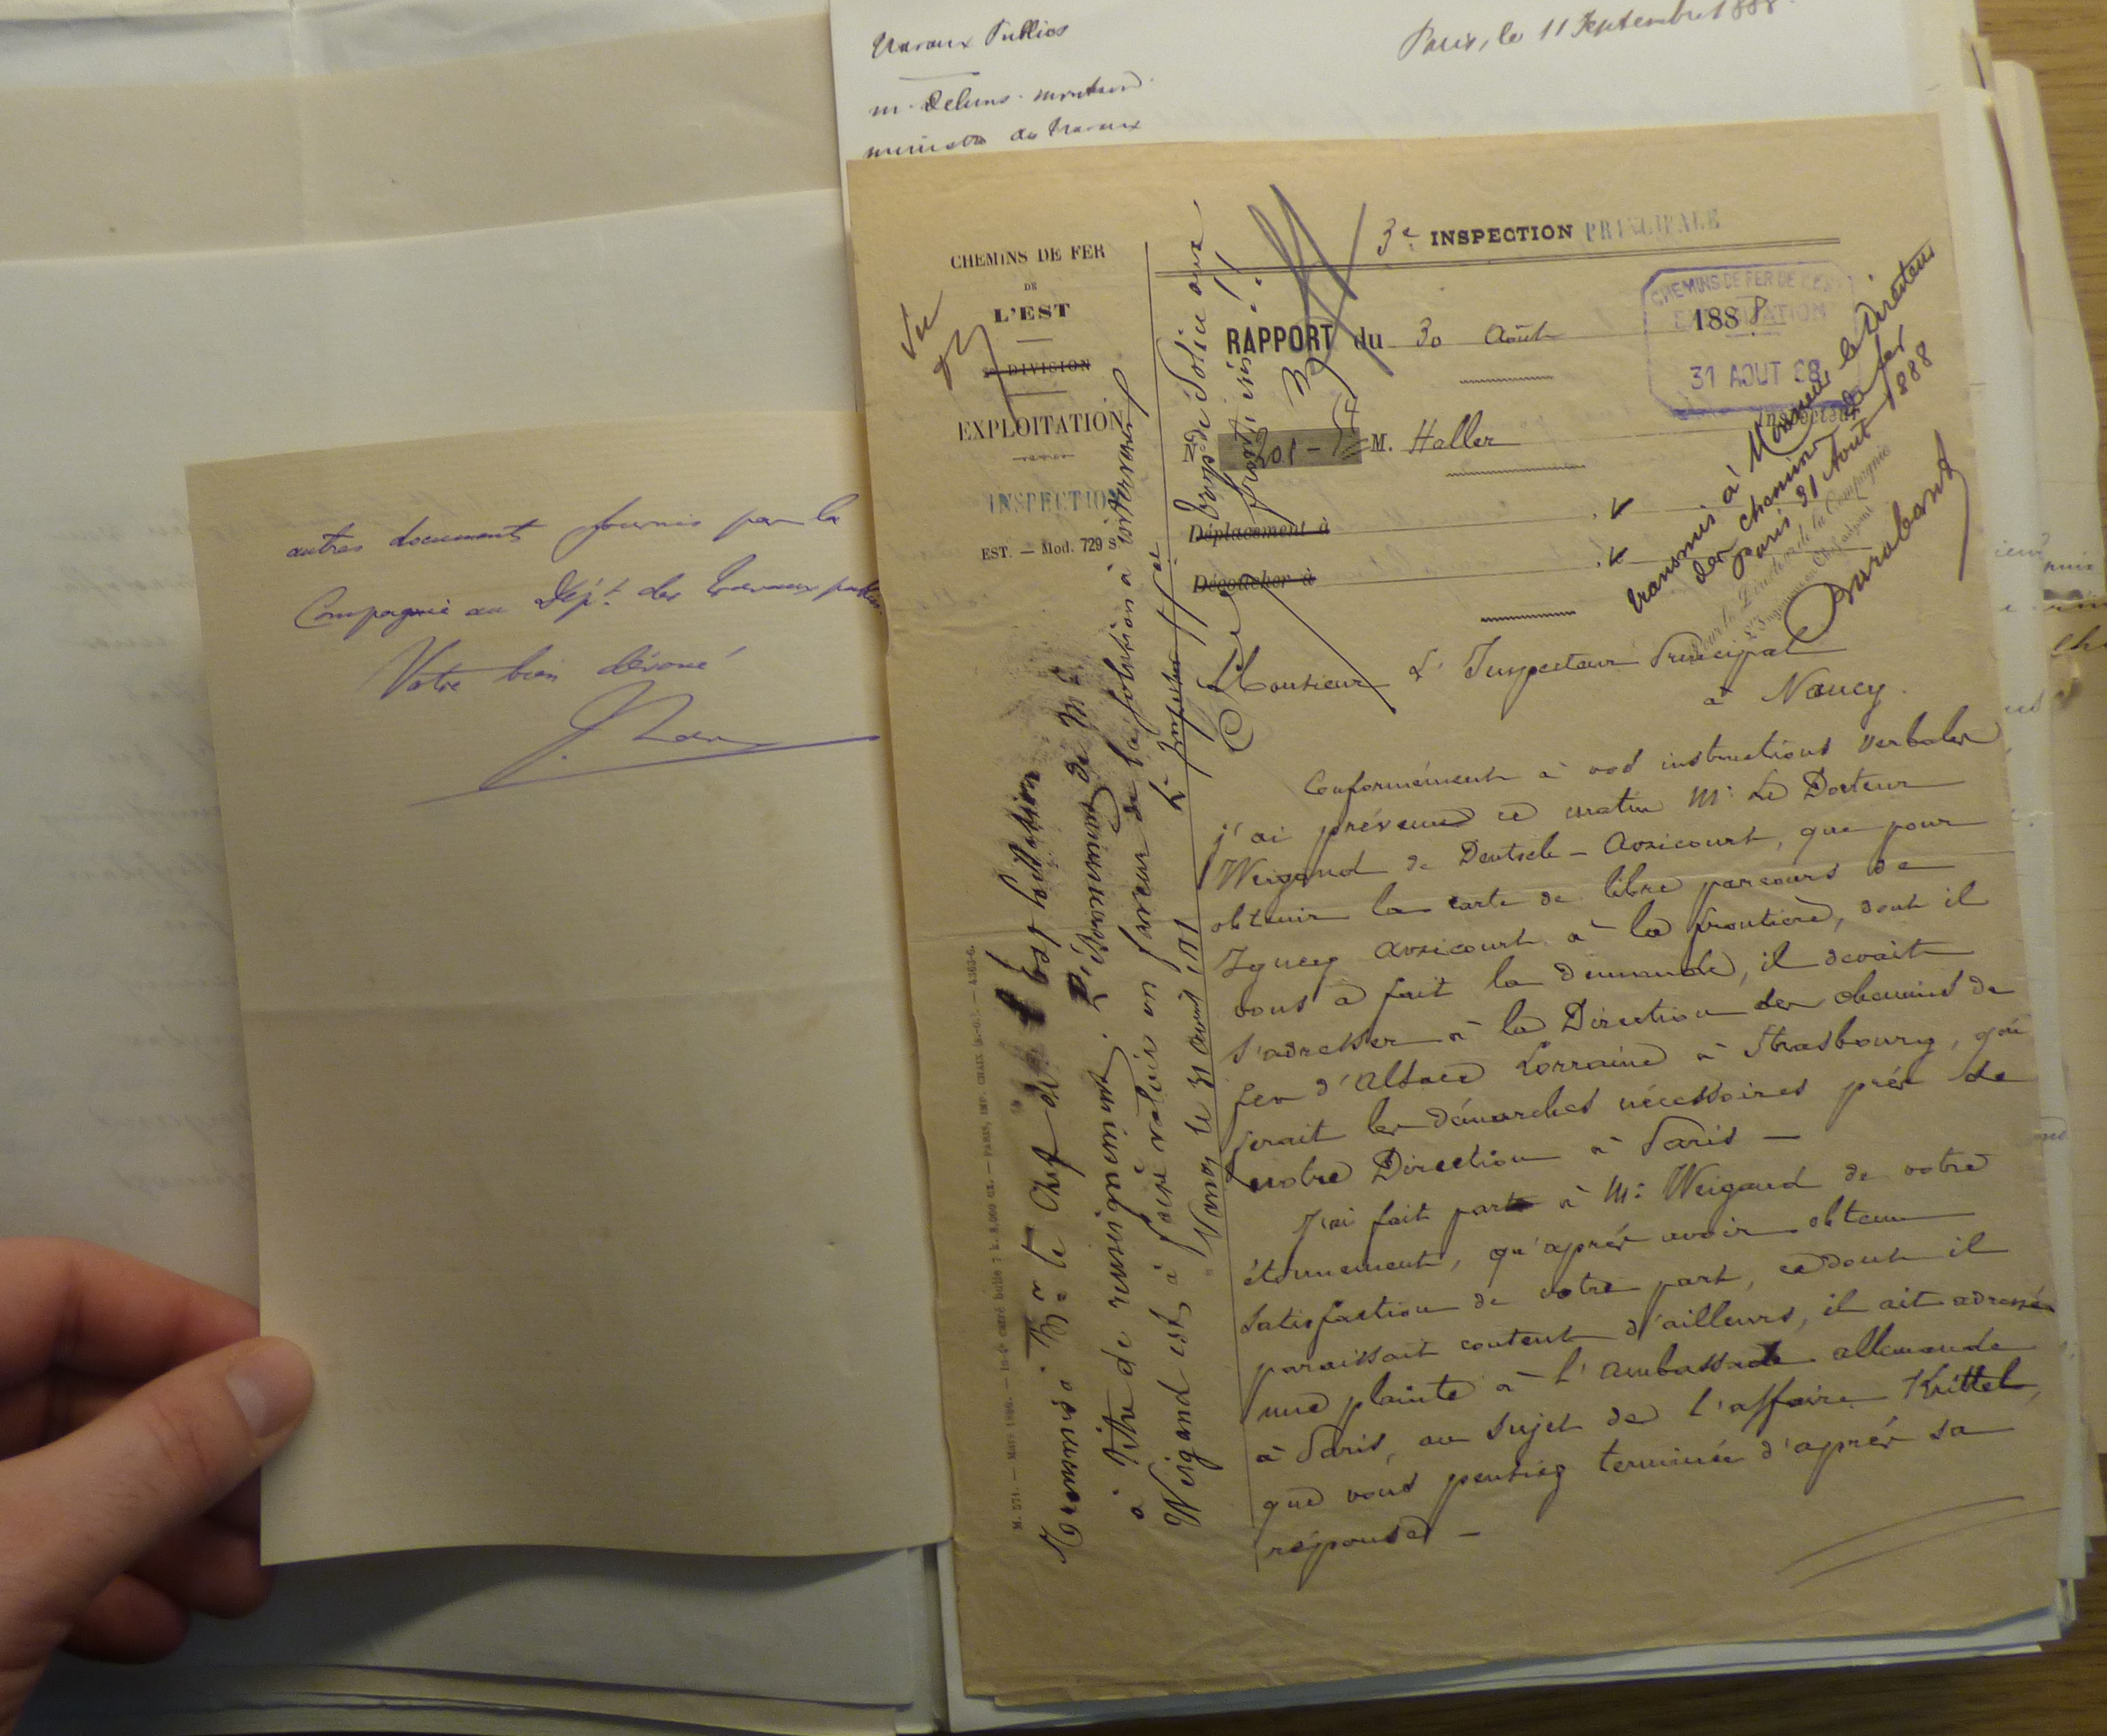 Travaux Publics
Paris, le 11 Septembre 1888
M. Deluns-Montaud
ministre des travaux
autres documents fournis par la
Compagnie au Dépt. des travaux publics.
Votre bien dévoué
CHEMINS DE FER
DE
L'EST
DIVISION
EXPLOITATION
INSPECTION
EST. — Mod. 729 S
Vu
3e INSPECTION PRINCIPALE
RAPPORT du 30 Août 1888
CHEMINS DE FER DE L'EST
EXPLOITATION
31 AOUT 88
N° 201 - M. Haller
Inspecteur
Déplacement à
Découcher à
transmis à Monsieur le Directeur
des chemins de fer
Paris 31 Aout 1888
Pour le Directeur de la Compagnie
L'Ingénieur en Chef adjoint
Barabant
Monsieur L'Inspecteur Principal
à Nancy.
Conformément à vos instructions verbales
j'ai prévenu ce matin Mr. Le Docteur
Weigand de Deutsch-Avricourt, que pour
obtenir la carte de libre parcours de
Igney Avricourt à la frontière, dont il
vous a fait la demande, il devait
s'adresser à la Direction des chemins de
fer d'Alsace Lorraine à Strasbourg, qui
ferait les démarches nécessaires près de
notre Direction à Paris —
J'ai fait part à Mr. Weigand de votre
étonnement, qu'après avoir obtenu
satisfaction de votre part, ce dont il
paraissait content d'ailleurs, il ait adressé
une plainte à l'ambassade allemande
à Paris, au sujet de l'affaire Krittel,
que vous pensiez terminée d'après sa
réponse —
Transmis à Mr. le Chef de l'Exploitation
à titre de renseignement. L'étonnement de Mr.
Weigand est à faire valoir en faveur de la solution à intervenir
Nancy le 31 Août 1888
L'Inspecteur Pal
M. 571. — Mars 1886. — PARIS, IMP. CHAIX (S.-O.). — 4363-6.